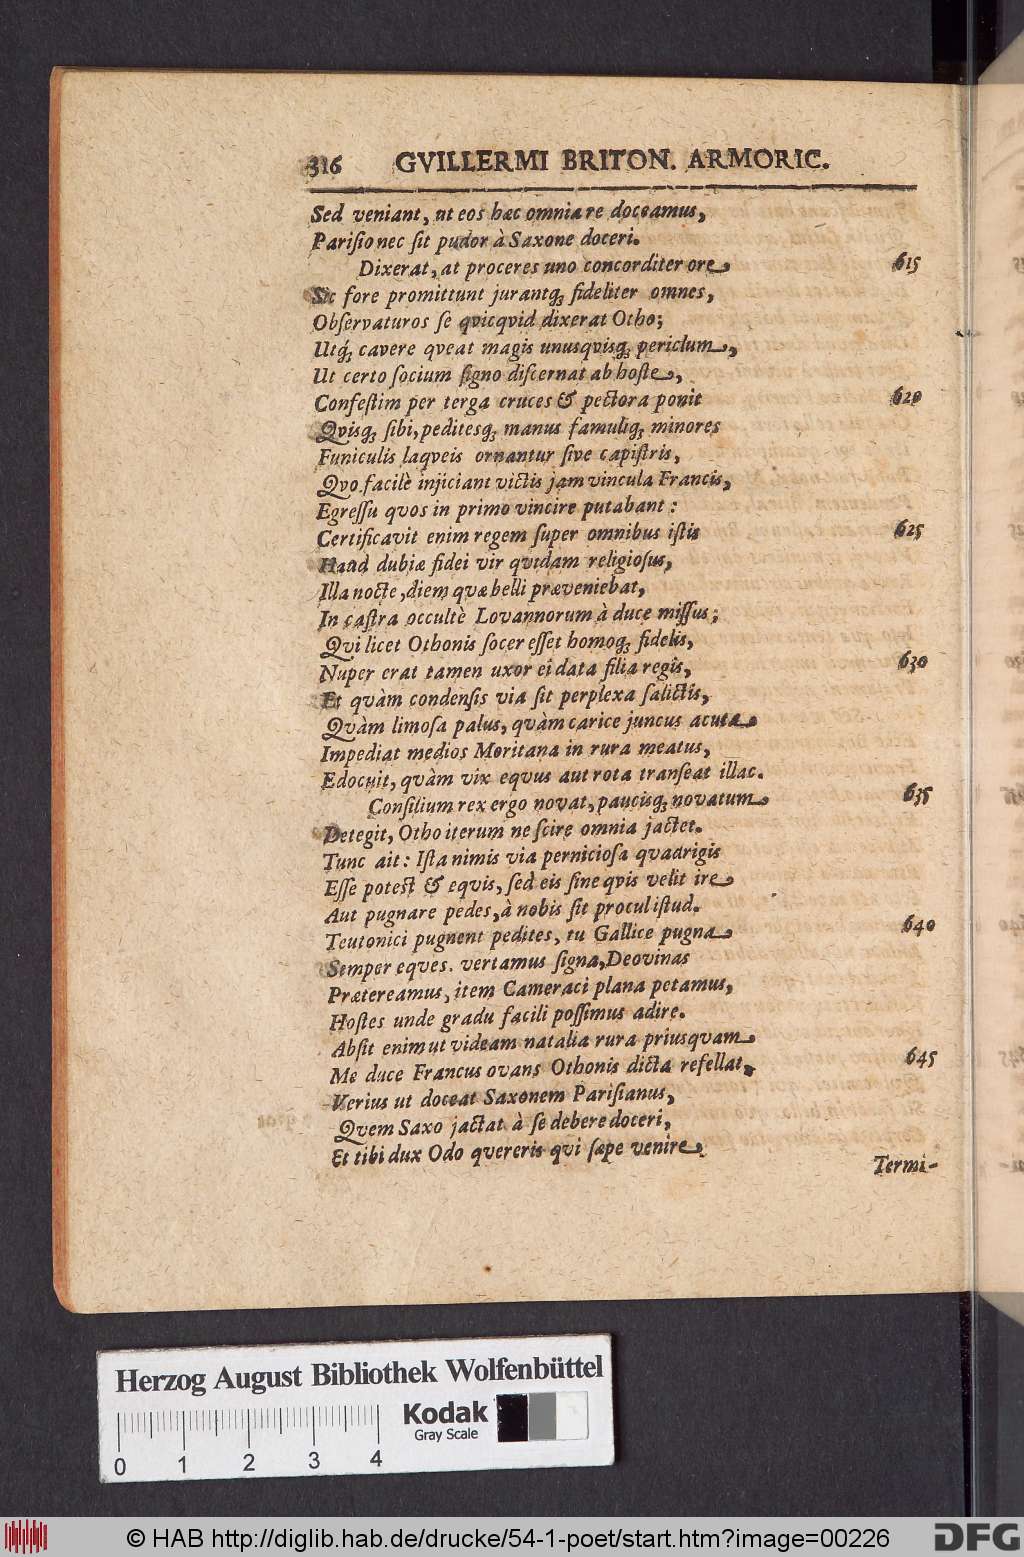 316 GVILLERMI BRITON. ARMORIC.
Sed veniant, ut eos hæc omnia re doceamus,
Parisio nec sit pudor à Saxone doceri.
Dixerat, at proceres uno concorditer ore 615
Sic fore promittunt jurantq; fideliter omnes,
Observaturos se qvicqvid dixerat Otho;
Utq; cavere qveat magis unusqvisq; periclum,
Ut certo socium signo discernat ab hoste,
Confestim per terga cruces & pectora ponit 620
Qvisq; sibi, peditesq; manus famuliq; minores
Funiculis laqveis ornantur sive capistris,
Qvo facilè injiciant victis jam vincula Francis,
Egressu quos in primo vincire putabant:
Certificavit enim regem super omnibus istis 625
Haud dubiæ fidei vir qvidam religiosus,
Illa nocte, diem quæ belli præveniebat,
In castra occultè Lovannorum à duce missus;
Qvi licet Othonis socer esset homoq; fidelis,
Nuper erat tamen uxor ei data filia regis, 630
Et quàm condensis via sit perplexa salictis,
Qvàm limosa palus, qvàm carice juncus acuta
Impediat medios Moritana in rura meatus,
Edocuit, qvàm vix eqvus aut rota transeat illac.
Consilium rex ergo novat, paucisq; novatum 635
Detegit, Otho iterum ne scire omnia jactet.
Tunc ait: Ista nimis via perniciosa qvadrigis
Esse potest & eqvis, sed eis sine qvis velit ire
Aut pugnare pedes, à nobis sit procul istud.
Teutonici pugnent pedites, tu Gallice pugna 640
Semper eques. vertamus signa, Deovinas
Prætereamus, item Cameraci plana petamus,
Hostes unde gradu facili possimus adire.
Absit enim ut videam natalia rura priusqvam
Me duce Francus ovans Othonis dicta refellat, 645
Verius ut doceat Saxonem Parisianus,
Qvem Saxo jactat à se debere doceri,
Et tibi dux Odo qvereris qvi sæpe venire
Termi-
Herzog August Bibliothek Wolfenbüttel
Kodak
Gray Scale
0 1 2 3 4
© HAB http://diglib.hab.de/drucke/54-1-poet/start.htm?image=00226
DFG